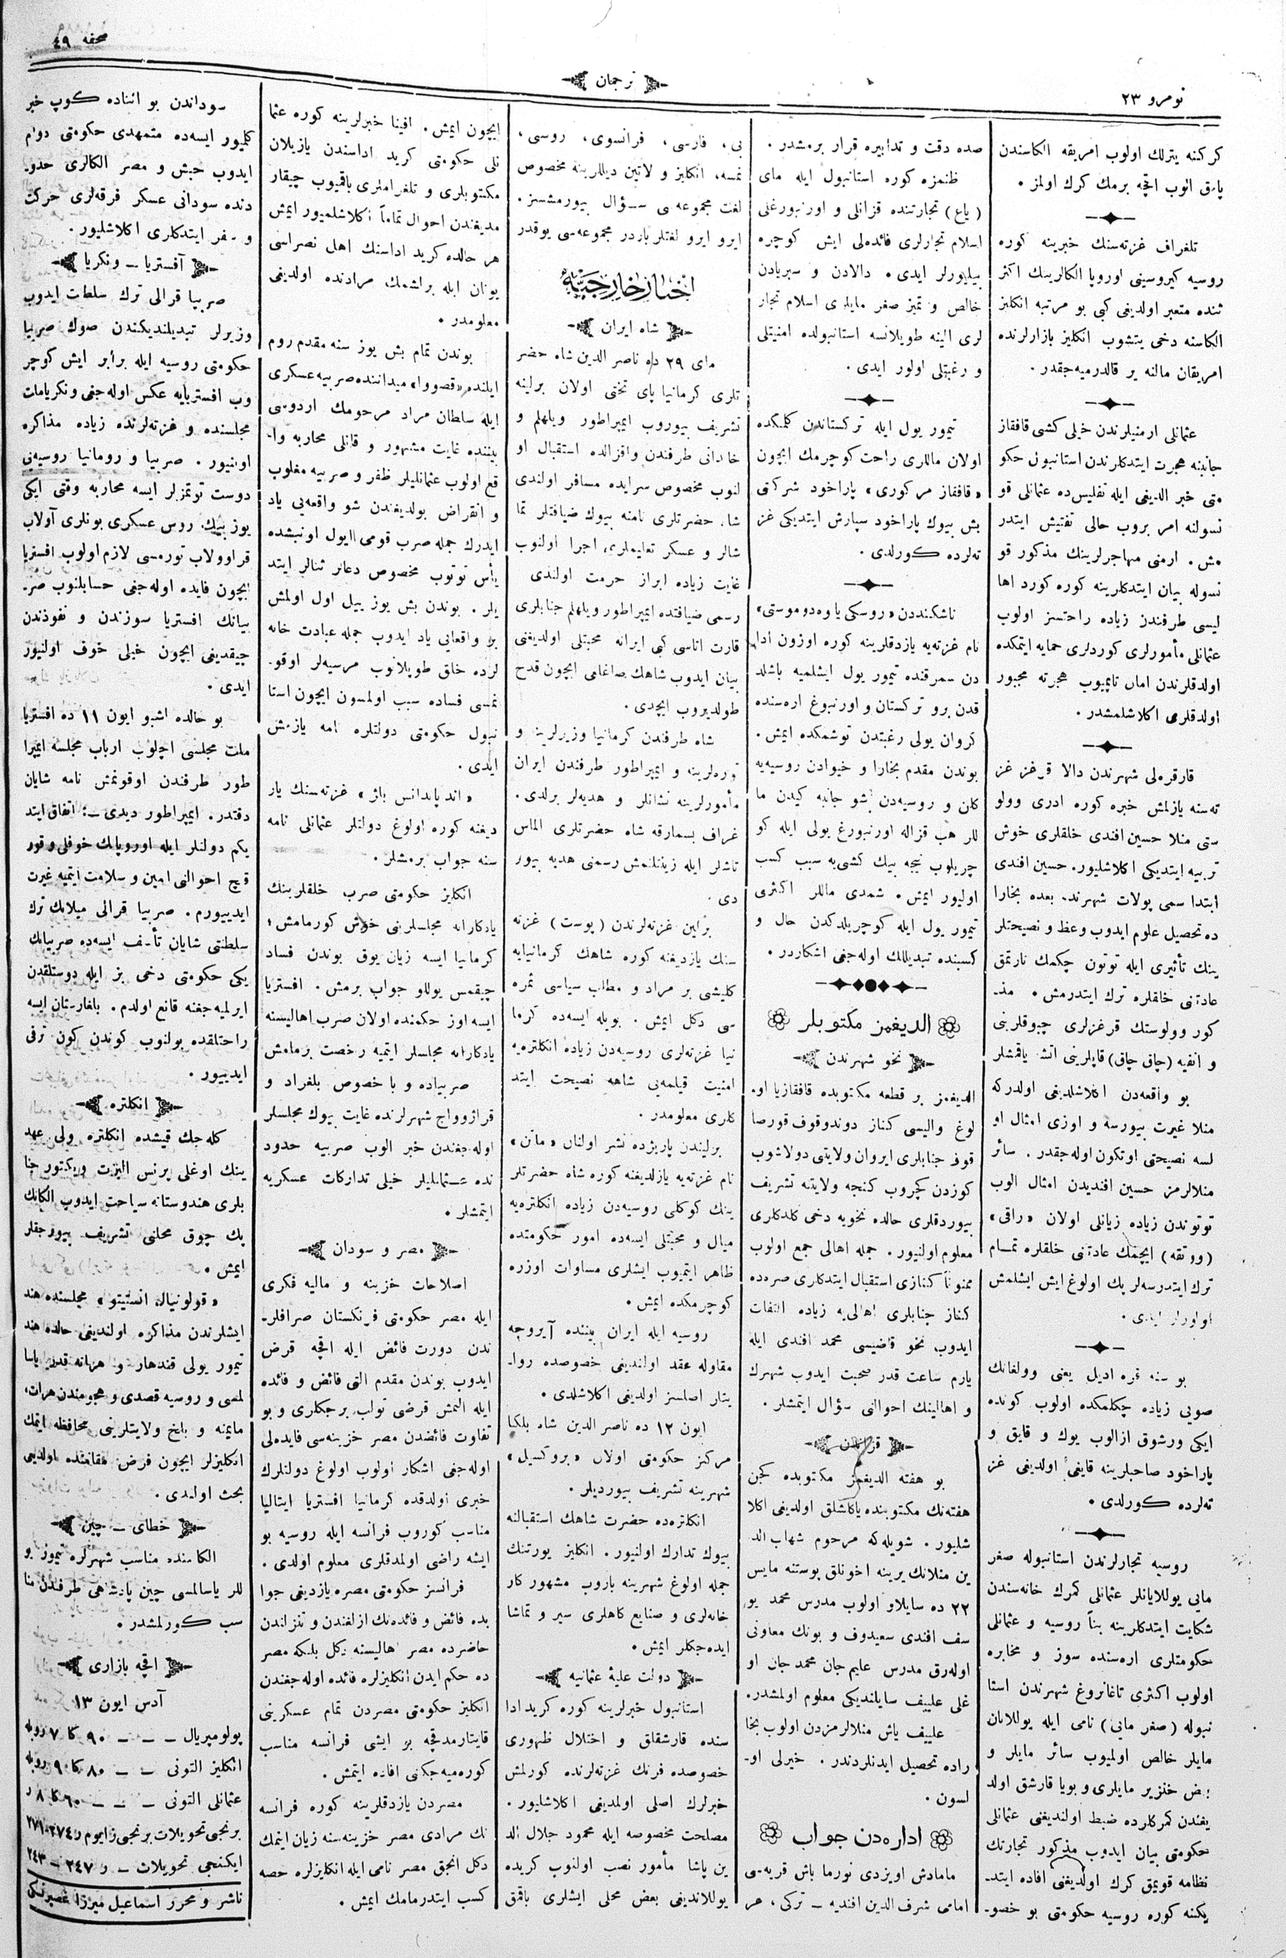 نومرو ٢٣
ترجمان
صحفه ٤٩
كركنه يترلك اولوب امريقه الكاسندن
پارق النوب اقچه برمك كرك اولمز .
تلغراف غزته‌سنك خبرينه كوره
روسيه كيروسينى اوروپا الكالرينك اكثر
ثنده متعبر اولديغى كبى بو مرتبه انكليز
الكاسنه دخى يتشوب انكليز بازارلرنده
امريقان مالنه ير قالدرميه‌جقدر .
عثمانلى ارمنيلرندن خيلى كشى قافقاز
جانبنه هجرت ايتدكلرندن استانبول حكو
متى خبر الديغى ايله تفليس‌ده عثمانلى قو
نسولنه امر بروب حالى تفتيش ايتدر
مش . ارمنى مهاجرلرينك مذكور قو
نسوله بيان ايتدكلرينه كوره كورد اها
ليسى طرفندن زياده راحتسز اولوب
عثمانلى مأمورلرى كوردلرى حمايه ايتمكده
اولدقلرندن امان تاپميوب هجرته مجبور
اولدقلرى اكلاشلمشدر .
قارقره‌لى شهرندن دالا قرغز غز
ته‌سنه يازلمش خبره كوره ادرى وولو
ستى منلا حسين افندى خلقلرى خوش
تربيه ايتديكى اكلاشليور . حسين افندى
ابتدا سمى پولات شهرنده بعده بخارا
ده تحصيل علوم ايدوب وعظ و نصيحتلر
ينك تأثيرى ايله توتون چكمك نارتمق
عادتنى خلقلره ترك ايتدرمش . مذ
كور وولوستك قرغزلرى چبوقلرينى
و انفيه (چاق چاق) قاپلرينى اتشه ياقمشلر
بو واقعه‌دن اكلاشلديغى اولدركه
منلا غيرت بيورسه و اوزى امثال او
لسه نصيحتى اوتكون اوله‌جقدر . سائر
منلالرمز حسين افنديدن امثال الوب
توتوندن زياده زيانلى اولان «راقى»
(ووتقه) ايچمك عادتنى خلقلره تمام
ترك ايتدرسه‌لر پك اولوغ ايش ايشلمش
اولورلر ايدى .
بو سنه قره اديل يعنى وولغانك
صويى زياده چكلمكده اولوب كونده
ايكى ورشوق ازالوب يوك و قايق و
پاراخود صاحبلرينه قايغى اولديغى غز
ته‌لرده كورلدى .
روسيه تجارلرندن استانبوله صغر
مايى يوللايانلر عثمانلى كمرك خانه‌سندن
شكايت ايتدكلرينه بناً روسيه و عثمانلى
حكومتلرى اره‌سنده سوز و مخابره
اولوب اكثرى تاغانروغ شهرندن استا
نبوله (صغر مايى) نامى ايله يوللانان
مايلر خالص اولميوب سائر مايلر و
بعض خنزير مايلرى و بويا قارشق اولد
يغندن كمركلرده ضبط اولنديغى عثمانلى
حكومتى بيان ايدوب مذكور تجارتك
نظامه قويمق كرك اولديغنى افاده ايتد
يكنه كوره روسيه حكومتى بو خصو
صده دقت و تدابيره قرار برمشدر .
ظنمزه كوره استانبول ايله ماى
(ياع) تجارتنده قزانلى و اورنبورغلى
اسلام تجارلرى فائده‌لى ايش كوچره
بيليورلر ايدى . دالادن و سبريادن
خالص و تميز صغر مايلرى اسلام تجار
لرى الينه طويلانسه استانبولده امنيتلى
و رغبتلى اولور ايدى .
تيمور يول ايله تركستاندن كلمكده
اولان ماللرى راحت كوچرمك ايچون
«قافقاز مركورى» پاراخود شركتى
بش بيوك پاراخود سپارش ايتديكى غز
ته‌لرده كورلدى .
تاشكنددن «روسكى ياوه‌دوموستى»
نام غزته‌يه يازدقلرينه كوره اوزون ادا
دن سمرقنده تيمور يول ايشلميه باشلد
قدن برو تركستان و اورنبوغ اره‌سنده
كروان يولى رغبتدن توشمكده ايمش .
بوندن مقدم بخارا و خيوادن روسيه‌يه
كان و روسيه‌دن شو جانبه كيدن ما
للر هب قزاله اورنبورغ يولى ايله كو
چريلوب نيجه بيك كشى‌يه سبب كسب
اوليور ايمش . شمدى ماللر اكثرى
تيمور يول ايله كوچريلدكدن حال و
كسبنده تبديللك اوله‌جغى اشكاردر .
الديغمز مكتوبلر
نخو شهرندن
الديغمز بر قطعه مكتوبده قافقازيا او
لوغ واليسى كناز دوندوقوف قورصا
قوف جنابلرى ايروان ولايتى دولاشوب
كوزدن كچروب كنجه ولايتنه تشريف
بيوردقلرى حالده نخويه دخى كلدكلرى
معلوم اولنيور . جمله اهالى جمع اولوب
ممنوناً كنازى استقبال ايتدكلرى صره‌ده
كناز جنابلرى اهالى‌يه زياده التفات
ايدوب نخو قاضيسى محمد افندى ايله
يارم ساعت قدر صحبت ايدوب شهرك
و اهالينك احوالنى سؤال ايتمشلر .
قزاندن
بو هفته الديغمز مكتوبده كچن
هفته‌نك مكتوبنده ياكاشلق اولديغى اكلا
شليور . شويله‌كه مرحوم شهاب الد
ين منلانك يرينه اخونلق پوستنه مايس
٢٢ ده سايلاو اولوب مدرس محمد يو
سف افندى سعيدوف و بونك معاونى
اوله‌رق مدرس عليم جان محمد جان او
غلى علييف سايلنديكى معلوم اولمشدر .
علييف ياش منلالرمزدن اولوب بخا
راده تحصيل ايدنلردندر . خيرلى او
لسون .
اداره‌دن جواب
مامادش اويزدى نورما باش قريه‌سى
امامى شرف الدين افنديه — تركى ، عر
بى ، فارسى ، فرانسوى ، روسى ،
نمسه ، انكليز و لاتين ديللرينه مخصوص
لغت مجموعه‌سى سؤال بيورمشسز .
ايرو ايرو لغتلر باردر مجموعه‌سى يوقدر
اخبار خارجيه
شاه ايران
ماى ٢٩ ده ناصر الدين شاه حضر
تلرى كرمانيا پاى تختى اولان برلينه
تشريف بيوروب ايمپراطور ويلهلم و
خاندانى طرفندن واقزالده استقبال او
لنوب مخصوص سرايده مسافر اولندى
شاه حضرتلرى نامنه بيوك ضيافتلر تما
شالر و عسكر تعليملرى اجرا اولنوب
غايت زياده ابراز حرمت اولندى
رسمى ضيافتده ايمپراطور ويلهلم جنابلرى
قارت اتاسى كبى ايرانه محبتلى اولديغنى
بيان ايدوب شاهك صاغلغى ايچون قدح
طولديروب ايچدى .
شاه طرفندن كرمانيا وزيرلرينه و
توره‌لرينه و ايمپراطور طرفندن ايران
مأمورلرينه نشانلر و هديه‌لر برلدى .
غراف بسمارقه شاه حضرتلرى الماس
تاشلر ايله زينتلنمش رسمنى هديه بيور
دى .
برلين غزته‌لرندن (پوست) غزته
سنك يازديغنه كوره شاهك كرمانيايه
كليشى بر مراد و مطلب سياسى ثمره
سى دكل ايمش . بويله ايسه‌ده كرما
نيا غزته‌لرى روسيه‌دن زياده انكلتره‌يه
امنيت قيلمه‌يى شاهه نصيحت ايتد
كلرى معلومدر .
برليندن پاريژده نشر اولنان «ماتن»
نام غزته‌يه يازلديغنه كوره شاه حضرتلر
ينك كوكلى روسيه‌دن زياده انكلتره‌يه
ميال و محبتلى ايسه‌ده امور حكومتده
ظاهر ايتميوب ايشلرى مساوات اوزره
كوچرمكده ايمش .
روسيه ايله ايران بيننده آيروچه
مقاوله عقد اولنديغى خصوصده روا
يتلر اصلسز اولديغى اكلاشلدى .
ايون ١٢ ده ناصر الدين شاه بلكيا
مركز حكومتى اولان «بروكسيل»
شهرينه تشريف بيورديلر .
انكلتره‌ده حضرت شاهك استقبالنه
بيوك تدارك اولنيور . انكليز يورتنك
جمله اولوغ شهرينه باروب مشهور كار
خانه‌لرى و صنايع كاهلرى سير و تماشا
ايده‌جكلر ايمش .
دولت عليه عثمانيه
استانبول خبرلرينه كوره كريد ادا
سنده قارشقلق و اختلال ظهورى
خصوصده فرنك غزته‌لرنده كورلمش
خبرلرك اصلى اولمديغى اكلاشليور .
مصلحت مخصوصه ايله محمود جلال الد
ين پاشا مأمور نصب اولنوب كريده
يوللانديغى بعض محلى ايشلرى باقمق
ايچون ايمش . افينا خبرلرينه كوره عثما
نلى حكومتى كريد اداسندن يازيلان
مكتوبلرى و تلغرافلرى باقيوب چيقار
مديغندن احوال تماماً اكلاشلميور ايمش
هر حالده كريد اداسنك اهل نصراسى
يونان ايله برلشمك مرادنده اولديغى
معلومدر .
بوندن تمام بش يوز سنه مقدم روم
ايلنده «قصووا» ميداننده صربيه عسكرى
ايله سلطان مراد مرحومك اردوسى
بيننده غايت مشهور و قانلى محاربه وا
قع اولوب عثمانليلر ظفر و صربيه مغلوب
و انقراض بولديغندن شو واقعه‌يى ياد
ايدرك جمله صرب قومى ايول اونبشده
يأس توتوب مخصوص دعالر ثنالر ايتد
يلر . بوندن بش يوز ييل اول اولمش
بو واقعه‌يى ياد ايدوب جمله عبادت خانه
لرده خلق طويلانوب مرسيه‌لر اوقو
نمسى فساده سبب اولمسون ايچون استا
نبول حكومتى دولتلره نامه يازمش
ايدى .
«انديپاندانس بلژ» غزته‌سنك ياز
ديغنه كوره اولوغ دولتلر عثمانلى نامه
سنه جواب برمشلر .
انكليز حكومتى صرب خلقلرينك
يادكارانه مجلسلرينى خوش كورمامش ؛
كرمانيا ايسه زيان يوق بوندن فساد
چيقمس يوللو جواب برمش . افستريا
ايسه اوز حكمنده اولان صرب اهاليسنه
يادكارانه مجلسلر ايتميه رخصت برمامش
صربياده و با خصوص بلغراد و
قراژوواچ شهرلرنده غايت بيوك مجلسلر
اوله‌جغندن خبر الوب صربيه حدود
نده عثمانليلر خيلى تداركات عسكريه
ايتمشلر .
مصر و سودان
اصلاحات خزينه و ماليه فكرى
ايله مصر حكومتى فرنكستان صرافلر
ندن دورت فائض ايله اقچه قرض
ايدوب بوندن مقدم التى فائض و فائده
ايله المش قرضى توله برجكلرى و بو
تفاوت فائضدن مصر خزينه‌سى فايده‌لى
اوله‌جغى اشكار اولوب اولوغ دولتلرك
خبرى اولدقده كرمانيا افستريا ايتاليا
مناسب كوروب فرانسه ايله روسيه بو
ايشه راضى اولمدقلرى معلوم اولدى .
فرانسز حكومتى مصره يازديغى جوا
بده فائض و فائده‌نك ازلغندن و تنزلندن
حاضرده مصر اهاليسنه دكل بلكه مصر
ده حكم ايدن انكليزلره فائده اوله‌جغندن
انكليز حكومتى مصردن تمام عسكرينى
قايتارمدقچه بو ايشى فرانسه مناسب
كورميه‌جكنى افاده ايتمش .
مصردن يازدقلرينه كوره فرانسه
نك مرادى مصر خزينه‌سنه زيان ايتمك
دكل انجق مصر نامى ايله انكليزلره حصه
كسب ايتدرمامك ايمش .
سوداندن بو اثناده كوپ خبر
كليور ايسه‌ده متمهدى حكومتى دوام
ايدوب حبش و مصر الكالرى حدو
دنده سودانى عسكر فرقه‌لرى حركت
و سفر ايتدكلرى اكلاشليور .
آفستريا — ونكريا
صربيا قرالى ترك سلطنت ايدوب
وزيرلر تبديلنديكندن صوك صربيا
حكومتى روسيه ايله برابر ايش كوچر
وب افسترياىه عكس اوله‌جغى ونكريامات
مجلسنده و غزته‌لرنده زياده مذاكره
اولنيور . صربيا و رومانيا روسيه‌يى
دوست توتمزلر ايسه محاربه وقتى ايكى
يوز بيك روس عسكرى بونلرى آولاب
قراوولاب تورمسى لازم اولوب افستريا
ايچون فايده اوله‌جغى حسابلنوب صر
بيانك افستريا سوزندن و نفوذندن
چيقديغى ايچون خيلى خوف اولنيور
ايدى .
بو حالده اشبو ايون ١١ ده افستريا
ملت مجلسى اچلوب ارباب مجلسه ايمپرا
طور طرفندن اوقونمش نامه شايان
دقتدر . ايمپراطور ديدى — : اتفاق ايتد
يكم دولتلر ايله اوروپانك خوفلى و قور
قنچ احوالنى امين و سلامت ايتميه غيرت
ايدييورم . صربيا قرالى ميلانك ترك
سلطنتى شايان تأسف ايسه‌ده صربيانك
يكى حكومتى دخى بز ايله دوستلقدن
ايرلميه‌جغنه قانع اولدم . بلغارستان ايسه
راحتلقده بولنوب كوندن كون ترقى
ايدييور .
انكلتره
كله‌جك قيشده انكلتره ولى عهد
ينك اوغلى پرنس البرت ويكتور جنا
بلرى هندوستانه سياحت ايدوب الكانك
پك چوق محلنى تشريف بيورجقلر
ايمش .
«قولونيال انستيتو» مجلسنده هند
ايشلرندن مذاكره اولنديغى حالده هند
تيمور يولى قندهار و هراته قدر ياسا
لمسى و روسيه قصدى و هجومندن هرات ،
مايمنه و بلخ ولايتلرينى محافظه ايتمك
انكليزلر ايچون فرض مقامنده اولديغى
بحث اولندى .
خطاى — چين
الكاسنده مناسب شهرلره تيمور يو
للر ياسالمسى چين پادشاهى طرفندن منا
سب كورلمشدر .
اقچه بازارى
آدس ايون ١٣
پولومپريال — — ٩٠ كا ٧ روبله
انكليز التونى — — ٨٠ كا ٩ روبله
عثمانلى التونى — — ٦٠ كا ٨ ر
برنجى تحويلات برنجى زايوم ر ٢٧٤ - ٢٧١
ايكنجى تحويلات — ر ٢٤٧ - ٢٤٣
ناشر و محرر اسماعيل ميرزا غصپرنسكى